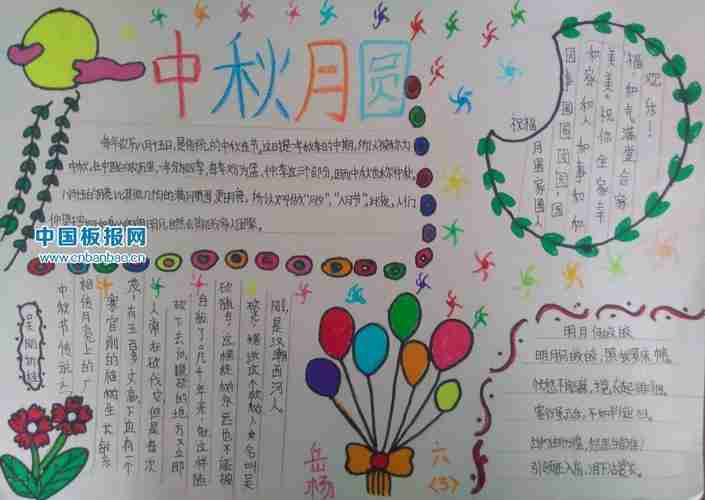 中秋月圆
每年农历八月十五日,是传统的中秋佳节,这时是一年秋季的中期,所以被称为
中秋,在中国的农历里,一年分为四季,每季又分为孟、仲、季三个部分,因而中秋也称仲秋,
八月十五的月亮比其他几个月的满月更圆,更明亮,所以又叫做“月夕”,“八月节”,此夜,人们
中国板报网
www.cnbanbao.cn
祝福
月圆家圆人
圆事圆圆团圆,国
和家和人和事和和
美美,祝你全家幸
福,和气满堂合家
欢乐!
吴刚折桂
中秋节传说之
相传月亮上的广
寒宫前的桂树生
有五百多丈高,下边有一个
人常在砍伐它,但是每次
砍下去以后,被砍的地方又立即
合拢了,几千年来,就这样随
砍随合,这棵桂树永远也不能被
砍光。据说这个砍树人名叫吴
刚,是汉朝西河人
明月何皎皎
明月何皎皎,照我罗床帏。
忧愁不能寐,揽衣起徘徊。
客行虽云乐,不如早旋归。
出户独彷徨,愁思当告谁!
引领还入房,泪下沾裳衣。
岳杨
六
(3)